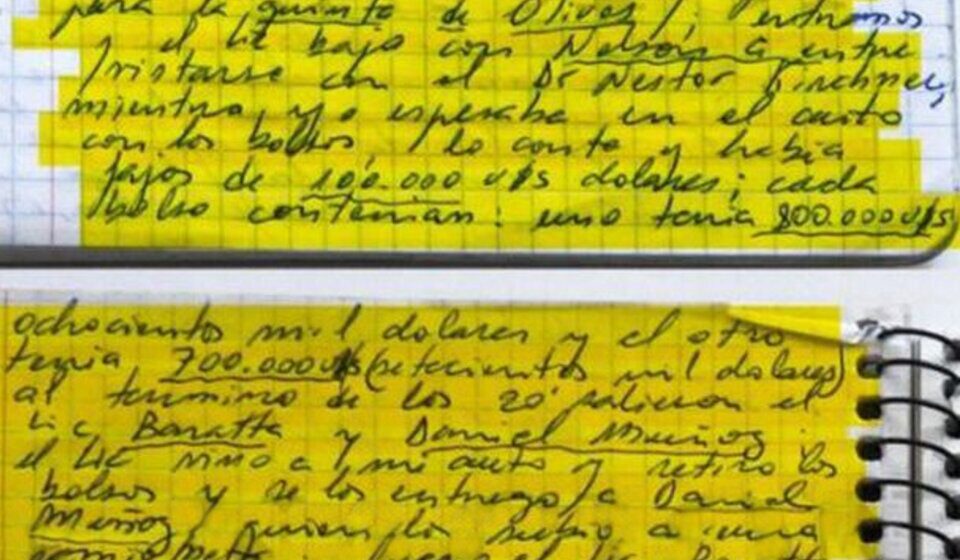 para la quinta de Olivos, entramos
y el Lic bajo con Nelson a entre
vistarse con el Dr Nestor Kirchner,
mientras yo esperaba en el auto
con los bolsos, lo conte y habia
fajos de 100.000 u$s dolares; cada
bolso contenian: uno tenia 800.000 u$s
ochocientos mil dolares y el otro
tenia 700.000 u$s (setecientos mil dolares)
al termino de los 20' salieron el
Lic Baratta y Daniel Muñoz.
el Lic vino a mi auto y retiro los
bolsos y se los entrego a Daniel
Muñoz quien los subio a una
camioneta